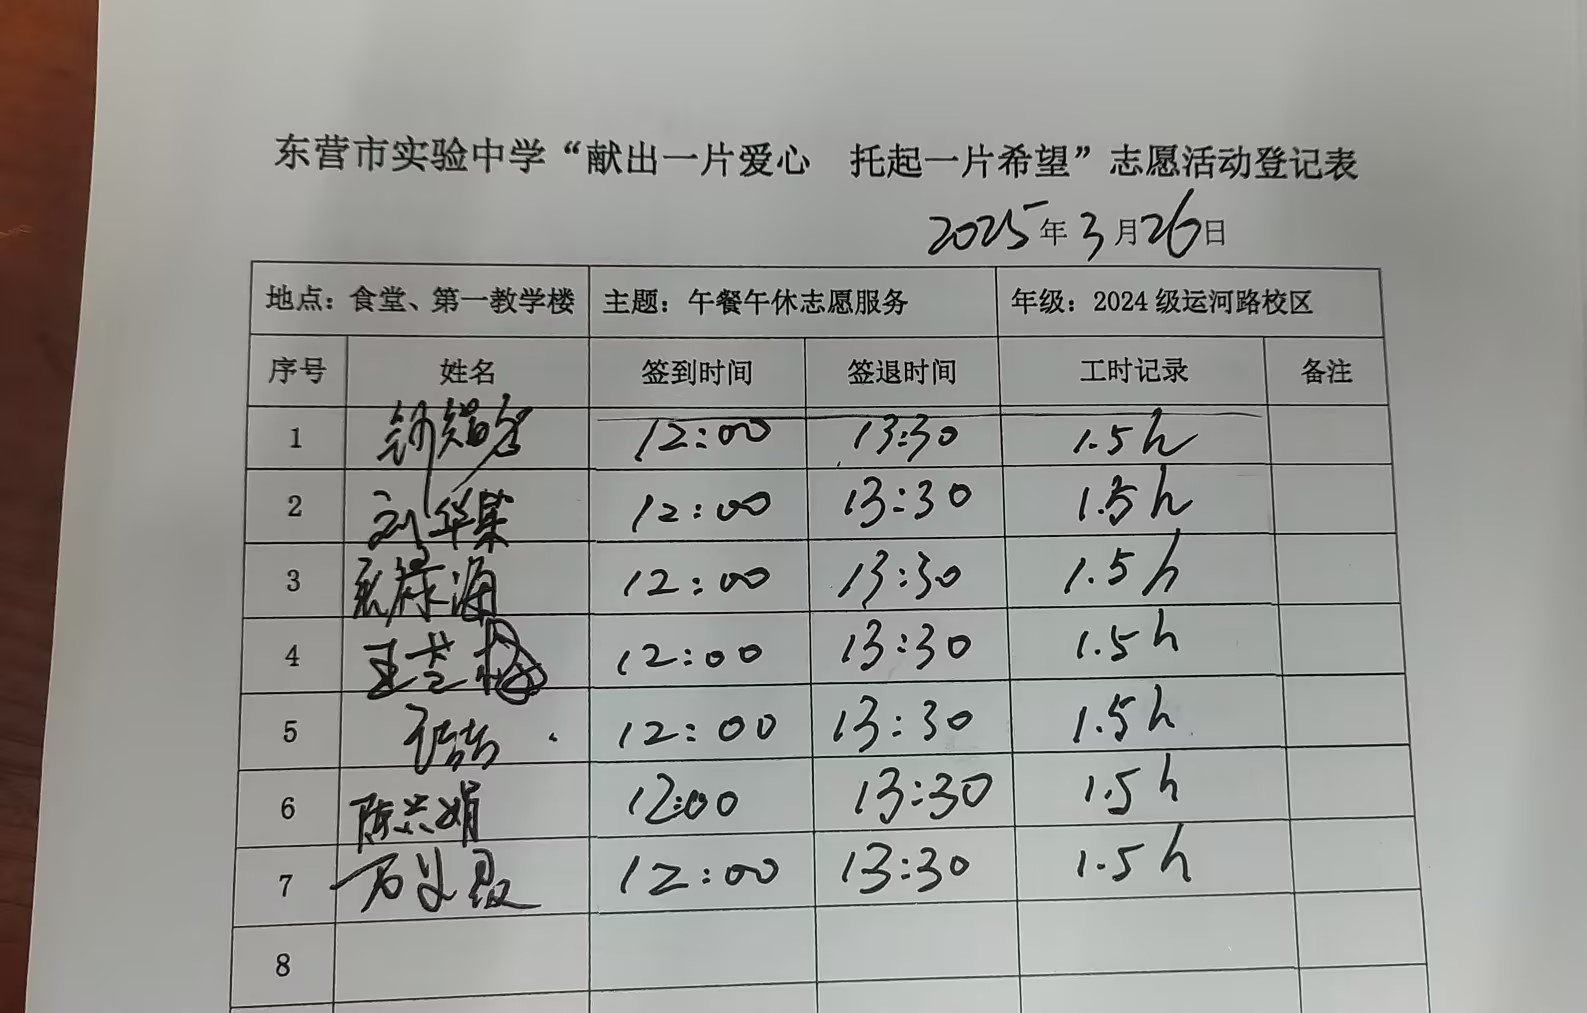 东营市实验中学“献出一片爱心 托起一片希望”志愿活动登记表
2025年3月26日
地点：食堂、第一教学楼 主题：午餐午休志愿服务 年级：2024级运河路校区
序号 姓名 签到时间 签退时间 工时记录 备注
1 12:00 13:30 1.5h
2 刘华荣 12:00 13:30 1.5h
3 12:00 13:30 1.5h
4 王芝梅 12:00 13:30 1.5h
5 12:00 13:30 1.5h
6 陈兰娟 12:00 13:30 1.5h
7 12:00 13:30 1.5h
8